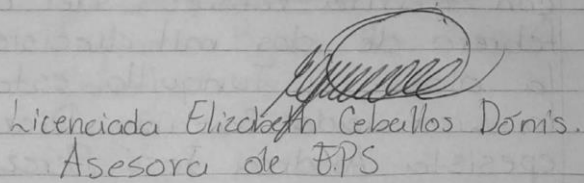 Licenciada Elizabeth Ceballos Donis.
Asesora de E.P.S